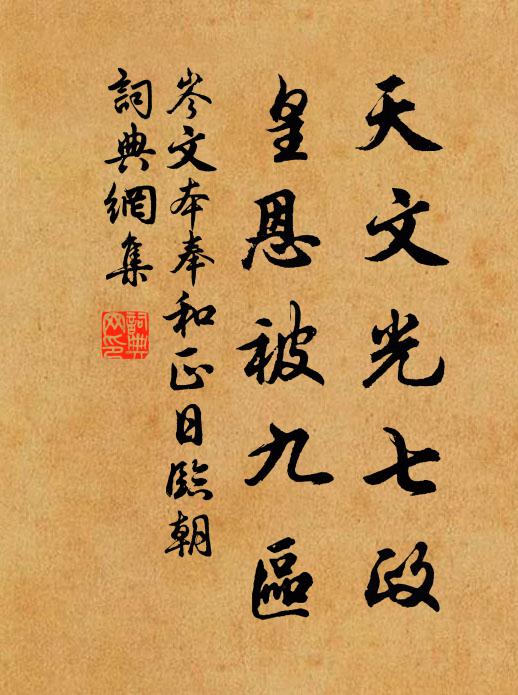 天文光七政
皇恩被九區
岑文本奉和正日臨朝
詞典網集
詞典網印